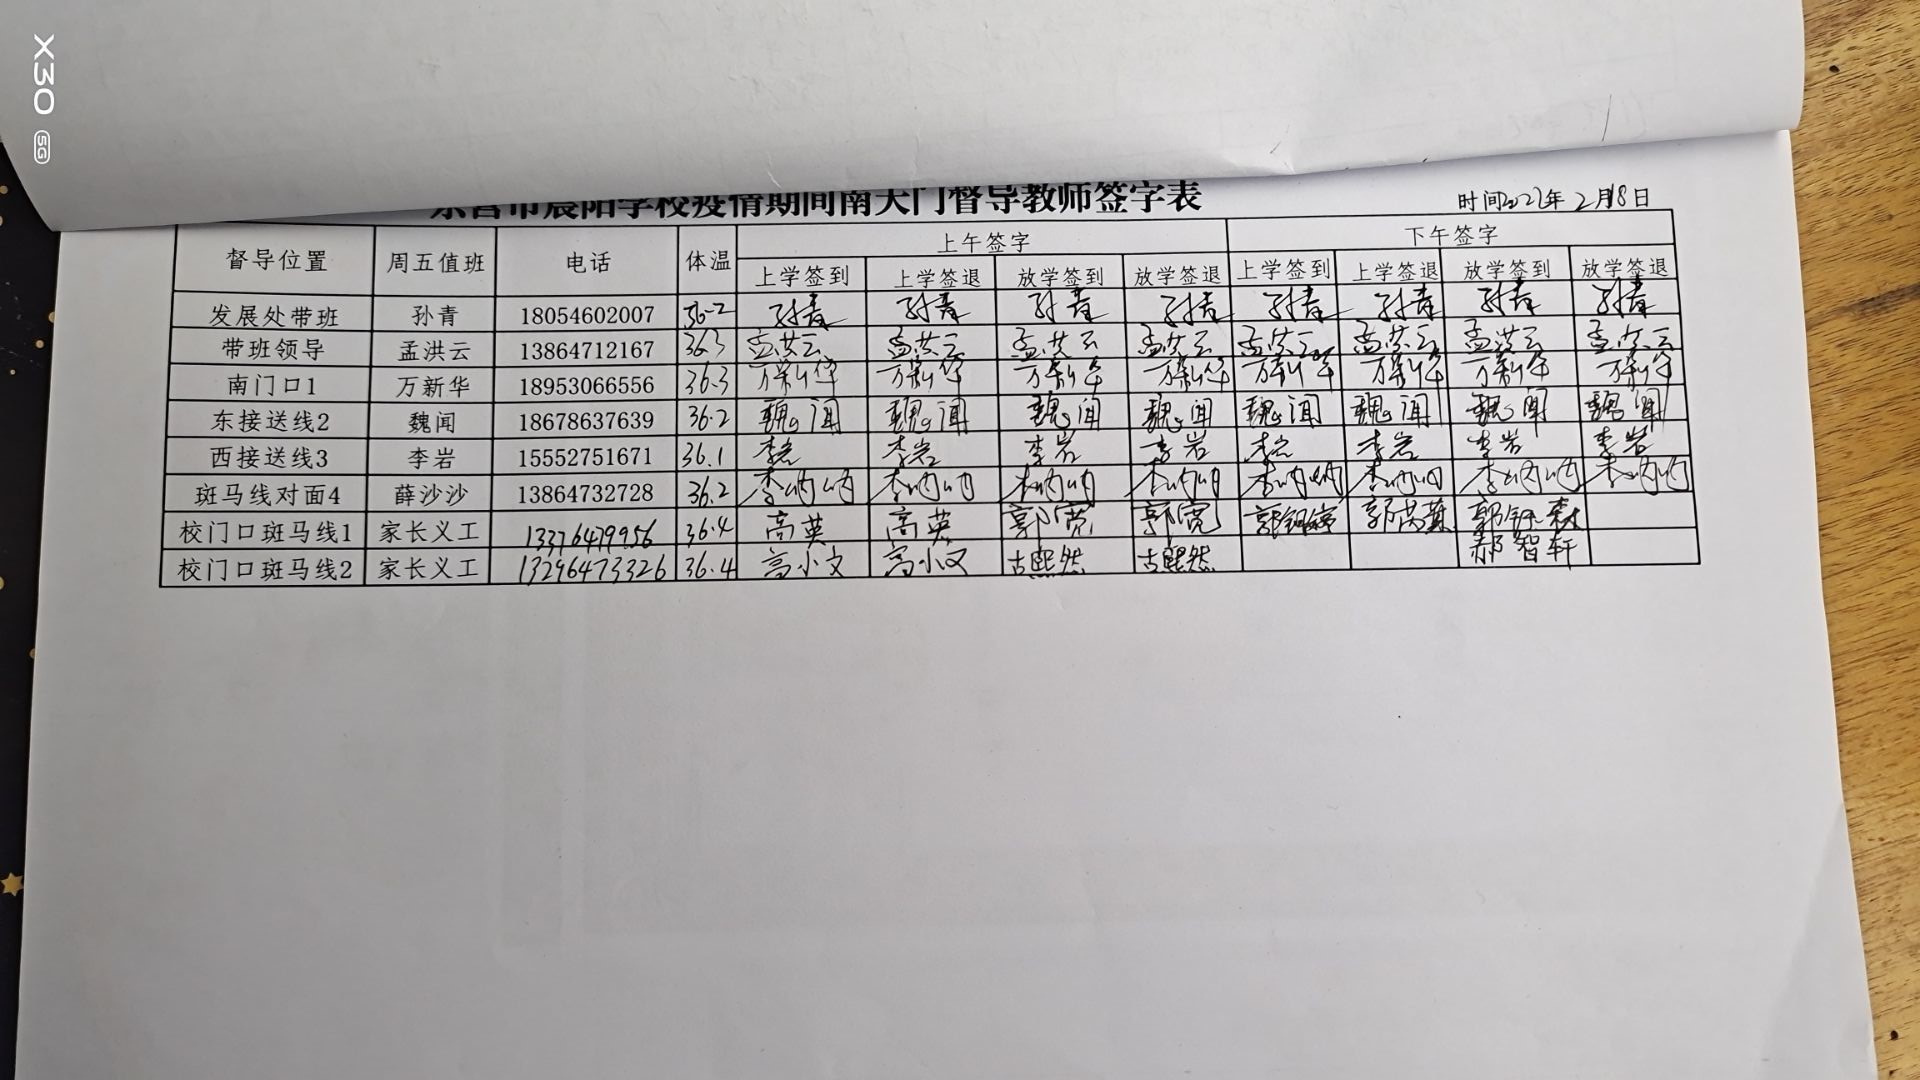 X30 5G
东营市晨阳学校疫情期间南大门督导教师签字表
时间2022年2月18日
督导位置 周五值班 电话 体温 上午签字 下午签字
上学签到 上学签退 放学签到 放学签退 上学签到 上学签退 放学签到 放学签退
发展处带班 孙青 18054602007 36.2 孙青 孙青 孙青 孙青 孙青 孙青 孙青 孙青
带班领导 孟洪云 13864712167 363 孟洪云 孟洪云 孟洪云 孟洪云 孟洪云 孟洪云 孟洪云 孟洪云
南门口1 万新华 18953066556 36.3 万新华 万新华 万新华 万新华 万新华 万新华 万新华 万新华
东接送线2 魏闻 18678637639 36.2 魏闻 魏闻 魏闻 魏闻 魏闻 魏闻 魏闻 魏闻
西接送线3 李岩 15552751671 36.1 李岩 李岩 李岩 李岩 李岩 李岩 李岩 李岩
斑马线对面4 薛沙沙 13864732728 36.2
校门口斑马线1 家长义工 13376479956 36.4 高英 高英 郭宽 郭宽
校门口斑马线2 家长义工 13296473326 36.4 高小文 高小文 古熙然 古熙然 郝智轩